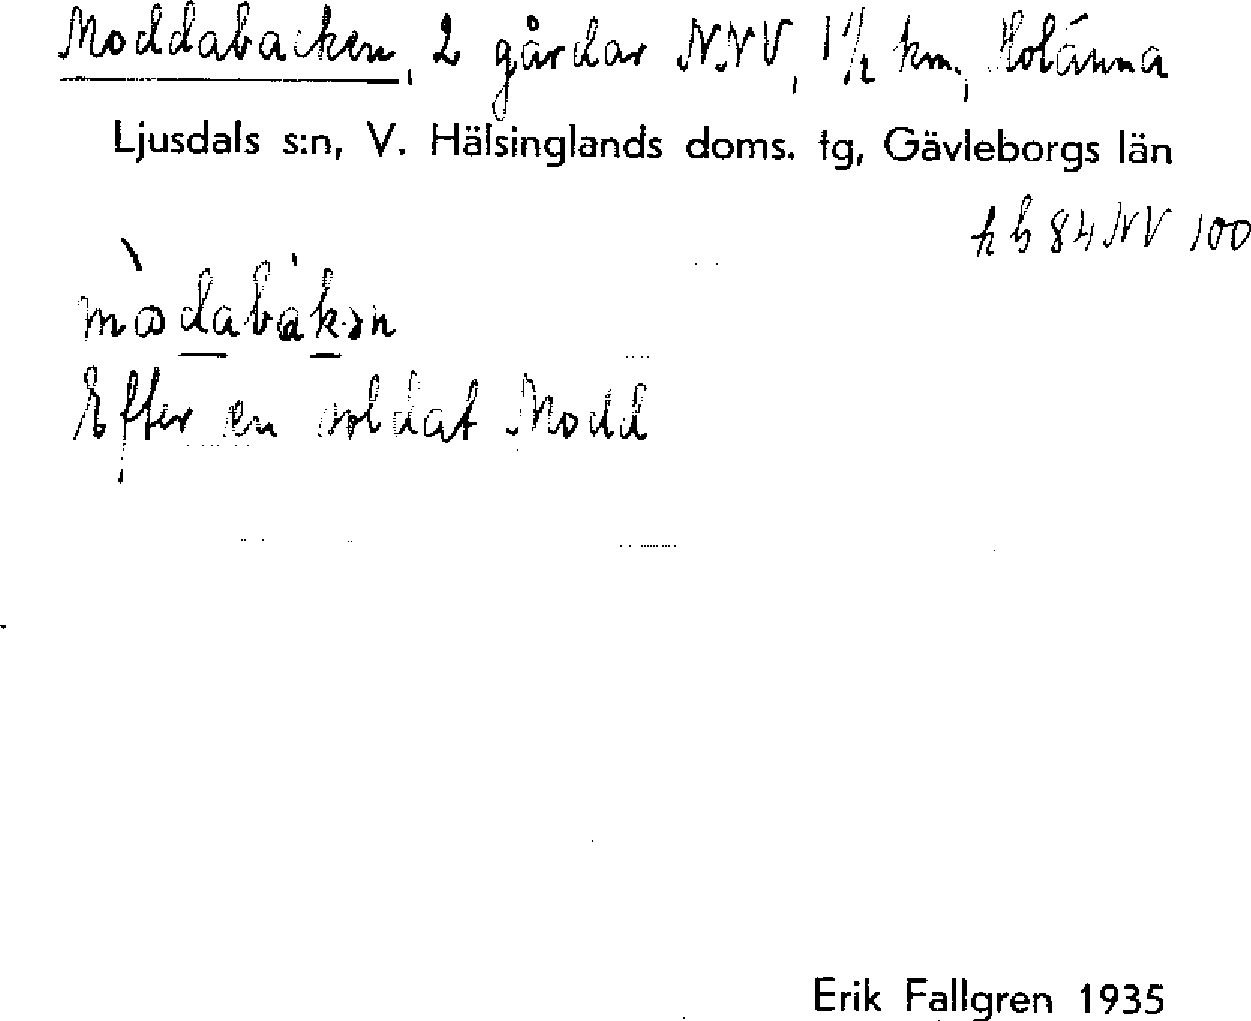 Moddabacken, 2 gårdar NNV, 1 1/2 km, Holänna
Ljusdals s:n, V. Hälsinglands doms. tg, Gävleborgs län
hb 84 NV 100
Efter en soldat Modd
Erik Fallgren 1935